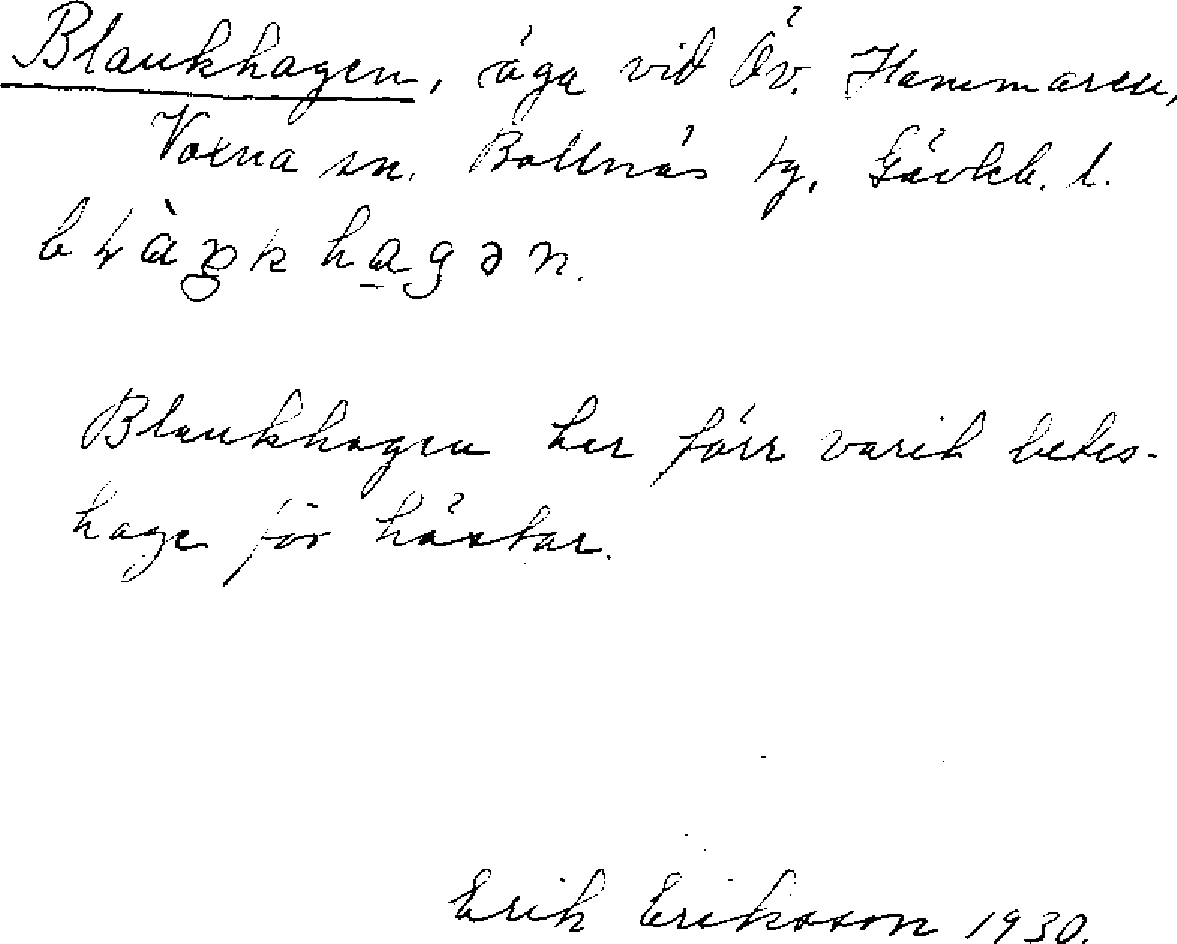 Blankhagen, äga vid Öv. Hammaren,
Voxna sn. Bollnäs tg, Gävleb. l.
Blankhagen har förr varit betes-
hage för hästar.
Erik Eriksson 1930.